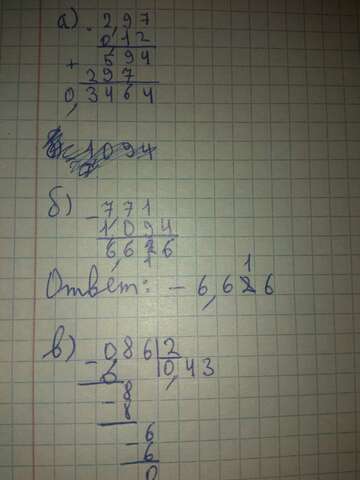 а) 2,97
0,12
+ 594
297
0,3464
б) - 7,71
1,094
6,626
1
Ответ: - 6,626
1
в) - 0,86 2
0 0,43
- 8
8
- 6
6
0